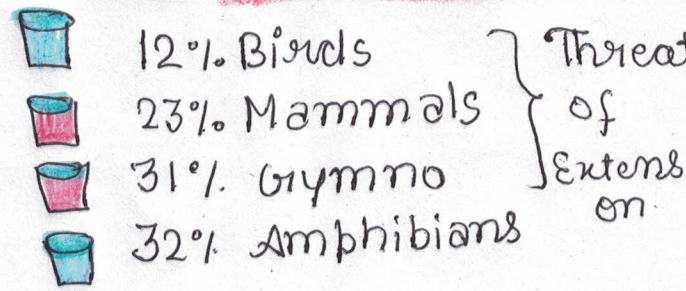 12% Birds
23% Mammals
31% Gymno
32% Amphibians
Threat
of
Extens
on